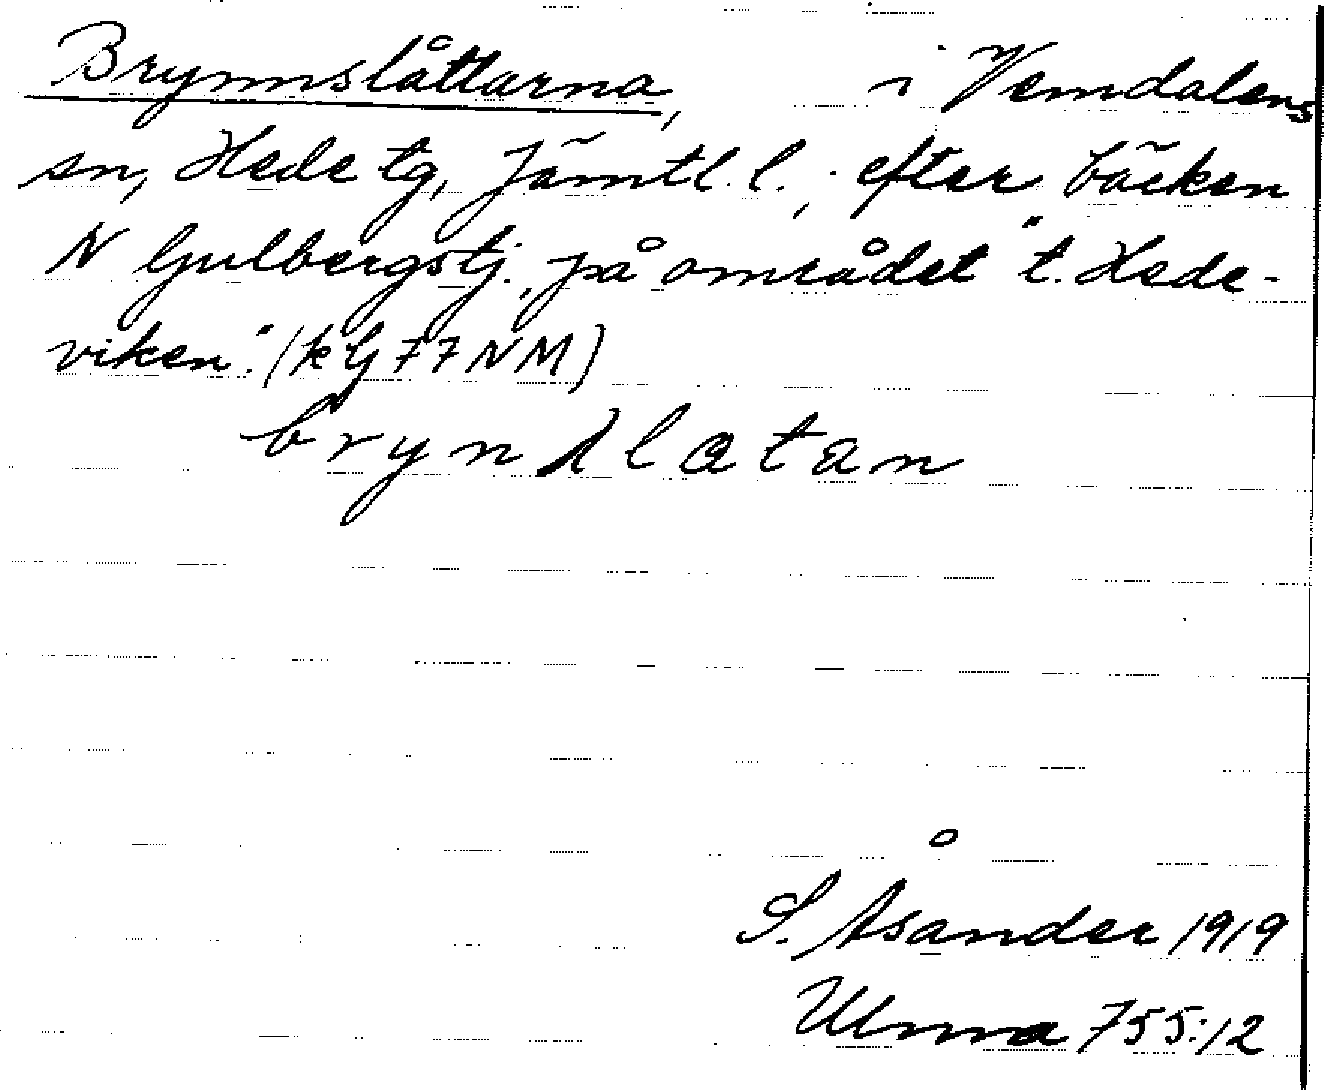 Brynnslåttarna, i Vemdalens
sn, Hede tg, Jämtl. l., efter bäcken
N Gulbergstj., på området "t. Hede-
viken." (k G 77 NM)
brynslatan
S. Åsander 1919
Ulma 755:12